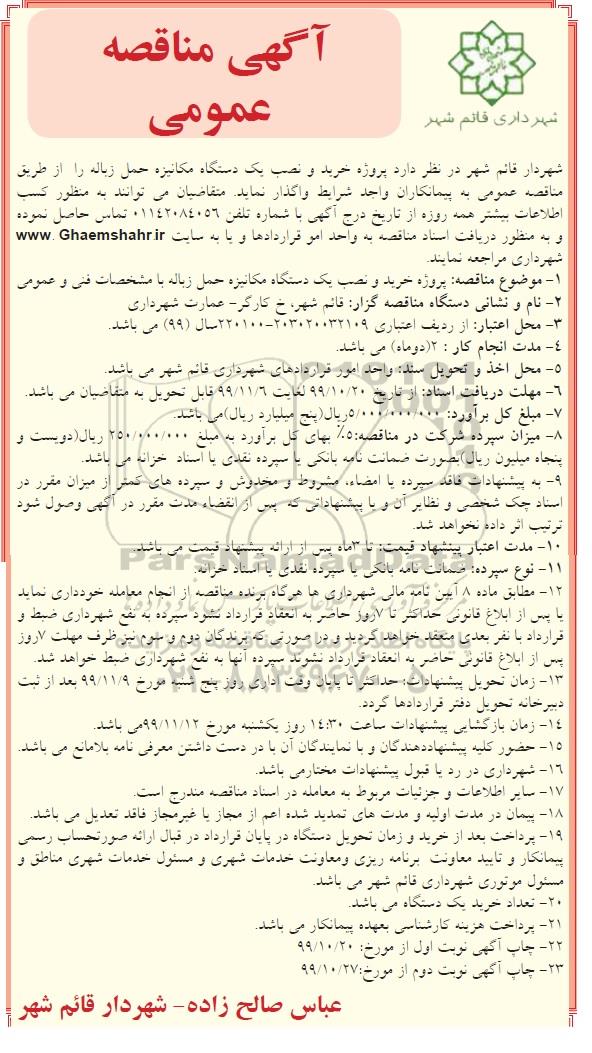 آگهی مناقصه
عمومی
شهرداری قائم شهر
شهردار قائم شهر در نظر دارد پروژه خرید و نصب یک دستگاه مکانیزه حمل زباله را از طریق
مناقصه عمومی به پیمانکاران واجد شرایط واگذار نماید. متقاضیان می توانند به منظور کسب
اطلاعات بیشتر همه روزه از تاریخ درج آگهی با شماره تلفن ۰۱۱۴۲۰۸۴۰۵۶ تماس حاصل نموده
و به منظور دریافت اسناد مناقصه به واحد امو قراردادها و یا به سایت www. Ghaemshahr.ir
شهرداری مراجعه نمایند.
۱- موضوع مناقصه: پروژه خرید و نصب یک دستگاه مکانیزه حمل زباله با مشخصات فنی و عمومی
۲- نام و نشانی دستگاه مناقصه گزار: قائم شهر، خ کارگر- عمارت شهرداری
۳- محل اعتبار: از ردیف اعتباری ۲۰۳۰۲۰۰۳۲۱۰۹-۲۲۰۱۰۰سال (۹۹) می باشد.
۴- مدت انجام کار : ۲(دوماه) می باشد.
۵- محل اخذ و تحویل سند: واحد امور قراردادهای شهرداری قائم شهر می باشد.
۶- مهلت دریافت اسناد: از تاریخ ۹۹/۱۰/۲۰ لغایت ۹۹/۱۱/۶ قابل تحویل به متقاضیان می باشد.
۷- مبلغ کل برآورد: ۵/۰۰۰/۰۰۰/۰۰۰ریال(پنج میلیارد ریال)می باشد.
۸- میزان سپرده شرکت در مناقصه:۵٪ بهای کل برآورد به مبلغ ۲۵۰/۰۰۰/۰۰۰ ریال(دویست و
پنجاه میلیون ریال)بصورت ضمانت نامه بانکی یا سپرده نقدی یا اسناد خزانه می باشد.
۹- به پیشنهادات فاقد سپرده یا امضاء، مشروط و مخدوش و سپرده های کمتر از میزان مقرر در
اسناد چک شخصی و نظایر آن و یا پیشنهاداتی که پس از انقضاء مدت مقرر در آگهی وصول شود
ترتیب اثر داده نخواهد شد.
۱۰- مدت اعتبار پیشنهاد قیمت: تا ۳ماه پس از ارائه پیشنهاد قیمت می باشد.
۱۱- نوع سپرده: ضمانت نامه بانکی یا سپرده نقدی یا اسناد خزانه.
۱۲- مطابق ماده ۸ آیین نامه مالی شهرداری ها هرگاه برنده مناقصه از انجام معامله خودداری نماید
یا پس از ابلاغ قانونی حداکثر تا ۷روز حاضر به انعقاد قرارداد نشود سپرده به نفع شهرداری ضبط و
قرارداد با نفر بعدی منعقد خواهد گردید و در صورتی که برندگان دوم و سوم نیز ظرف مهلت ۷روز
پس از ابلاغ قانونی حاضر به انعقاد قرارداد نشوند سپرده آنها به نفع شهرداری ضبط خواهد شد.
۱۳- زمان تحویل پیشنهادات: حداکثر تا پایان وقت اداری روز پنج شنبه مورخ ۹۹/۱۱/۹ بعد از ثبت
دبیرخانه تحویل دفتر قراردادها گردد.
۱۴- زمان بازگشایی پیشنهادات ساعت ۱۴:۳۰ روز یکشنبه مورخ ۹۹/۱۱/۱۲می باشد.
۱۵- حضور کلیه پیشنهاددهندگان و یا نمایندگان آن با در دست داشتن معرفی نامه بلامانع می باشد.
۱۶- شهرداری در رد یا قبول پیشنهادات مختارمی باشد.
۱۷- سایر اطلاعات و جزئیات مربوط به معامله در اسناد مناقصه مندرج است.
۱۸- پیمان در مدت اولیه و مدت های تمدید شده اعم از مجاز یا غیرمجاز فاقد تعدیل می باشد.
۱۹- پرداخت بعد از خرید و زمان تحویل دستگاه در پایان قرارداد در قبال ارائه صورتحساب رسمی
پیمانکار و تایید معاونت برنامه ریزی ومعاونت خدمات شهری و مسئول خدمات شهری مناطق و
مسئول موتوری شهرداری قائم شهر می باشد.
۲۰- تعداد خرید یک دستگاه می باشد.
۲۱- پرداخت هزینه کارشناسی بعهده پیمانکار می باشد.
۲۲- چاپ آگهی نوبت اول از مورخ: ۹۹/۱۰/۲۰
۲۳- چاپ آگهی نوبت دوم از مورخ:۹۹/۱۰/۲۷
عباس صالح زاده- شهردار قائم شهر
ParsNamadData